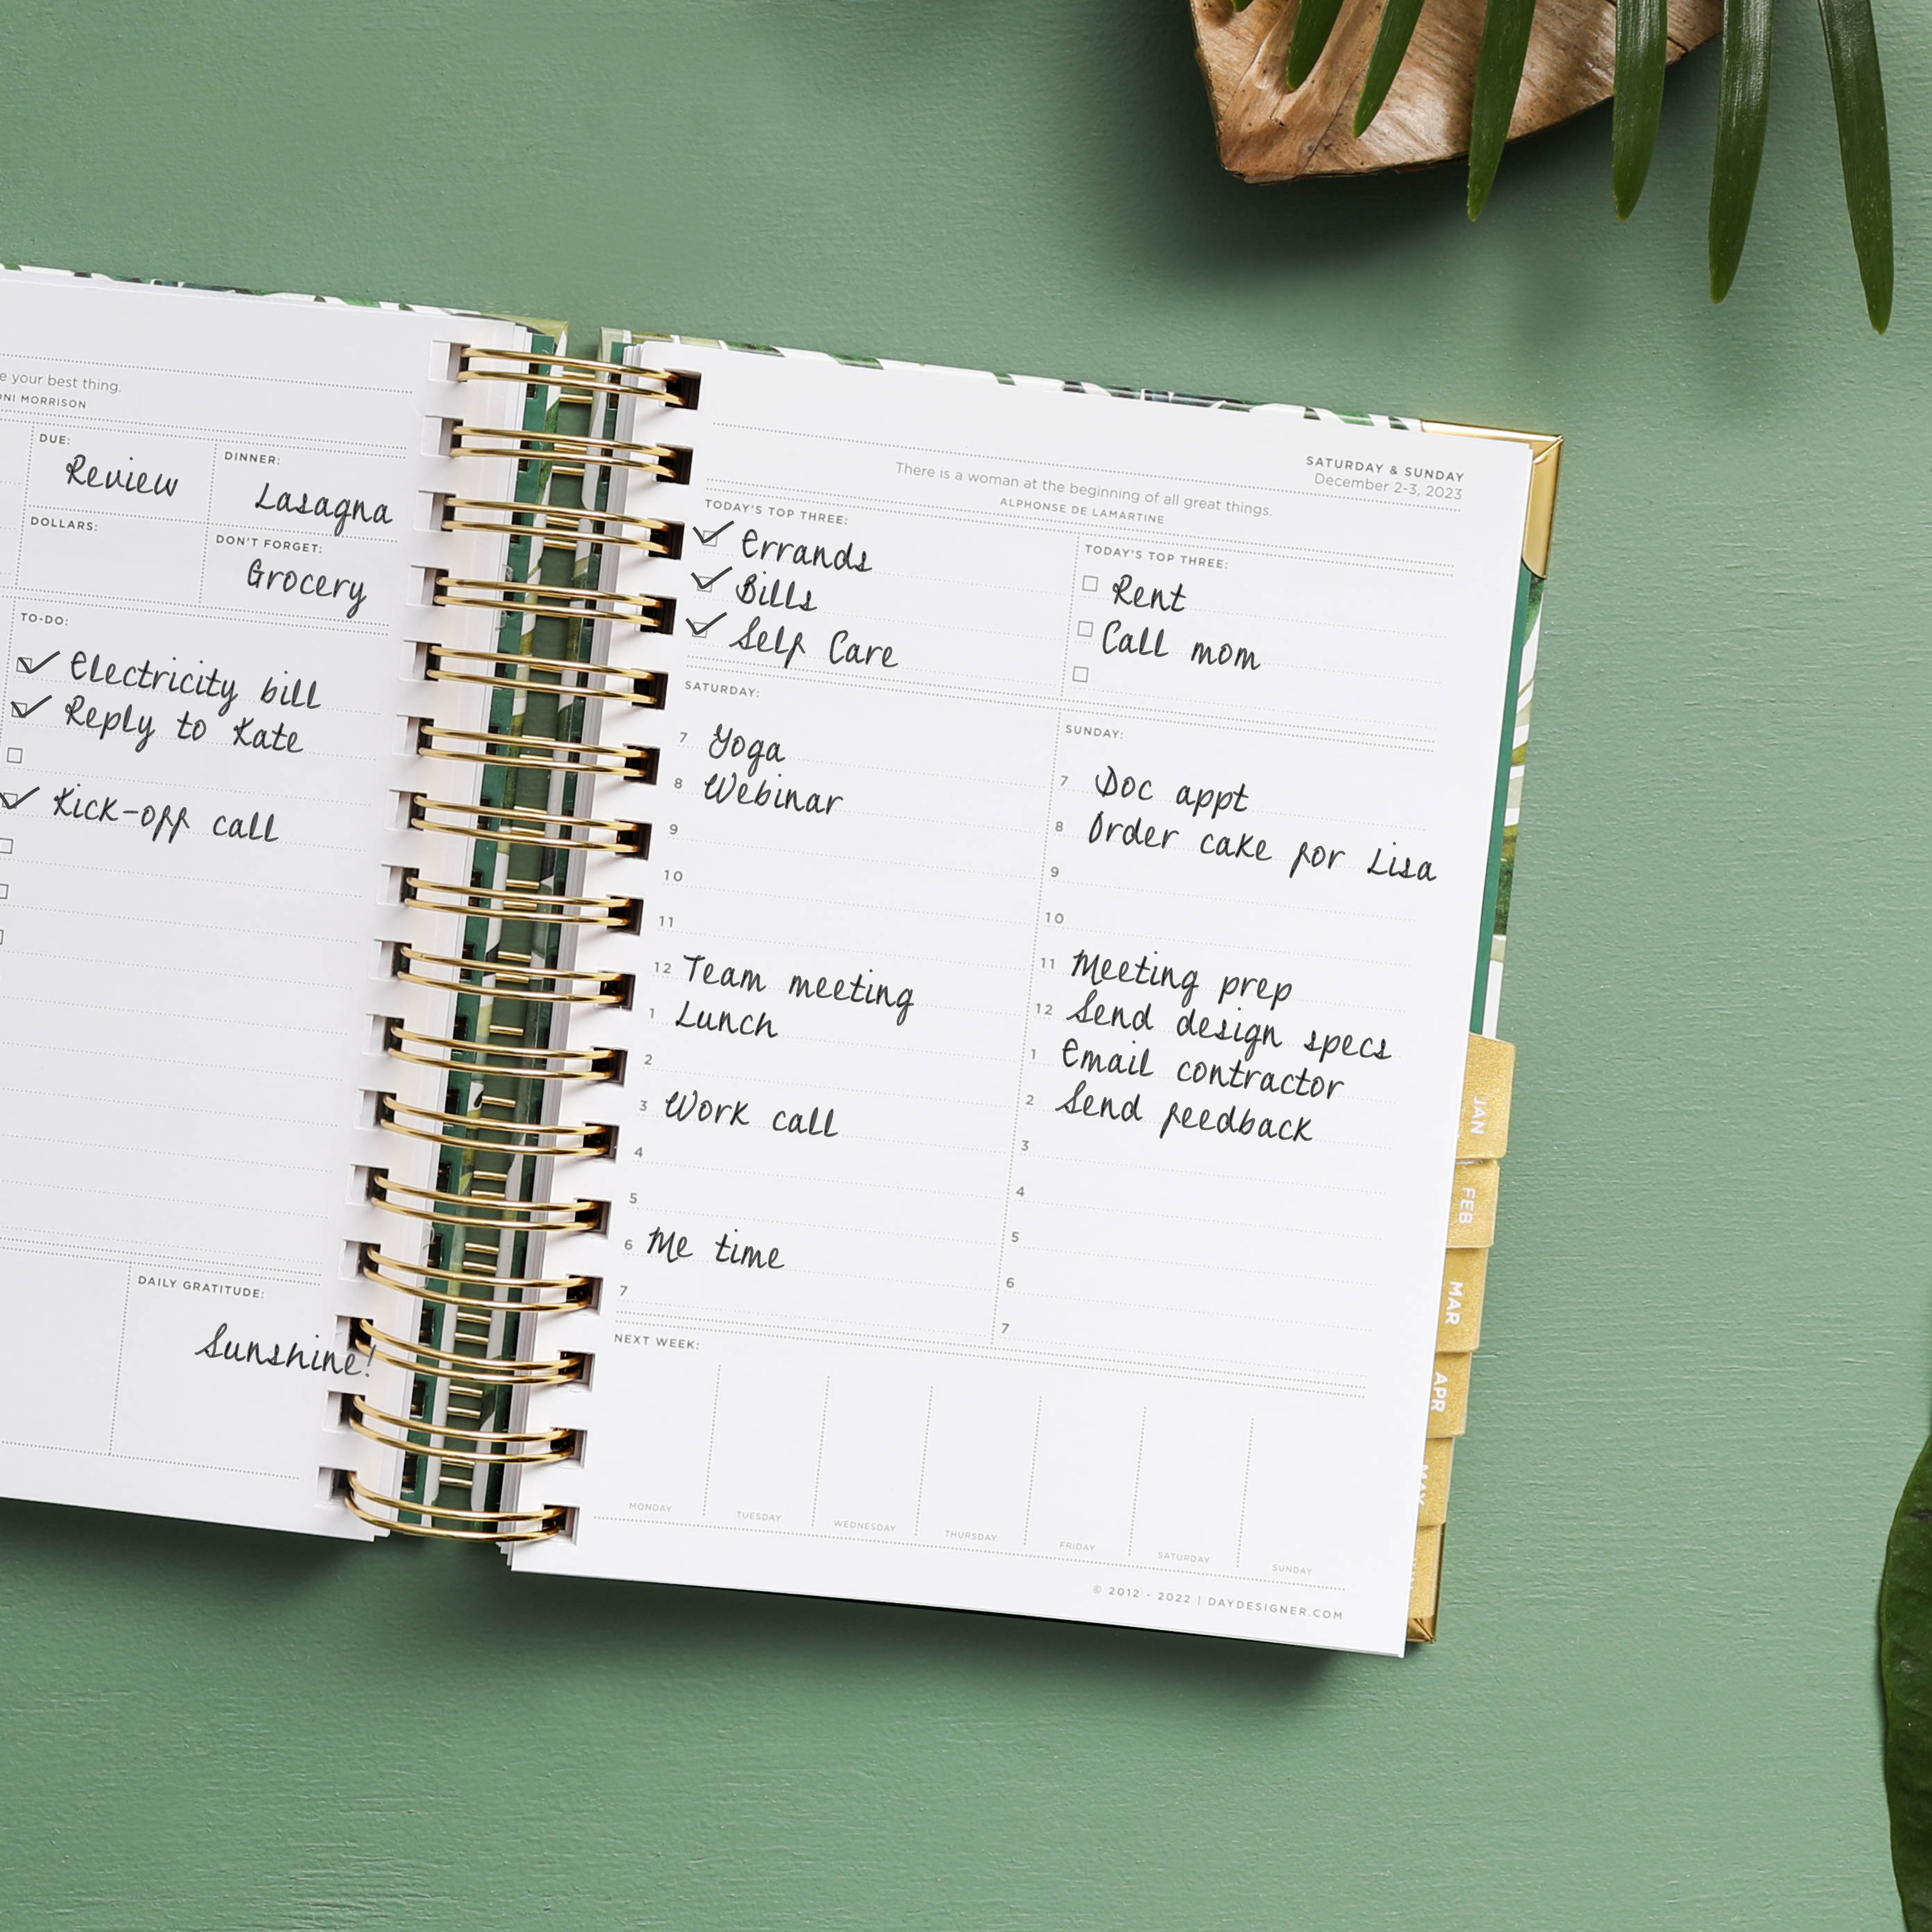 e your best thing.
ONI MORRISON
DUE:
Review
DINNER:
Lasagna
DOLLARS:
DON'T FORGET:
Grocery
TO-DO:
Electricity bill
Reply to Kate
Kick-off call
DAILY GRATITUDE:
Sunshine!
SATURDAY & SUNDAY
December 2-3, 2023
There is a woman at the beginning of all great things.
ALPHONSE DE LAMARTINE
TODAY'S TOP THREE:
Errands
Bills
Self Care
TODAY'S TOP THREE:
Rent
Call mom
SATURDAY:
7 Yoga
8 Webinar
9
10
11
12 Team meeting
1 Lunch
2
3 Work call
4
5
6 Me time
7
SUNDAY:
7 Doc appt
8 Order cake for Lisa
9
10
11 Meeting prep
12 Send design specs
1 Email contractor
2 Send feedback
3
4
5
6
7
NEXT WEEK:
MONDAY
TUESDAY
WEDNESDAY
THURSDAY
FRIDAY
SATURDAY
SUNDAY
© 2012 - 2022 | DAYDESIGNER.COM
JAN
FEB
MAR
APR
MAY